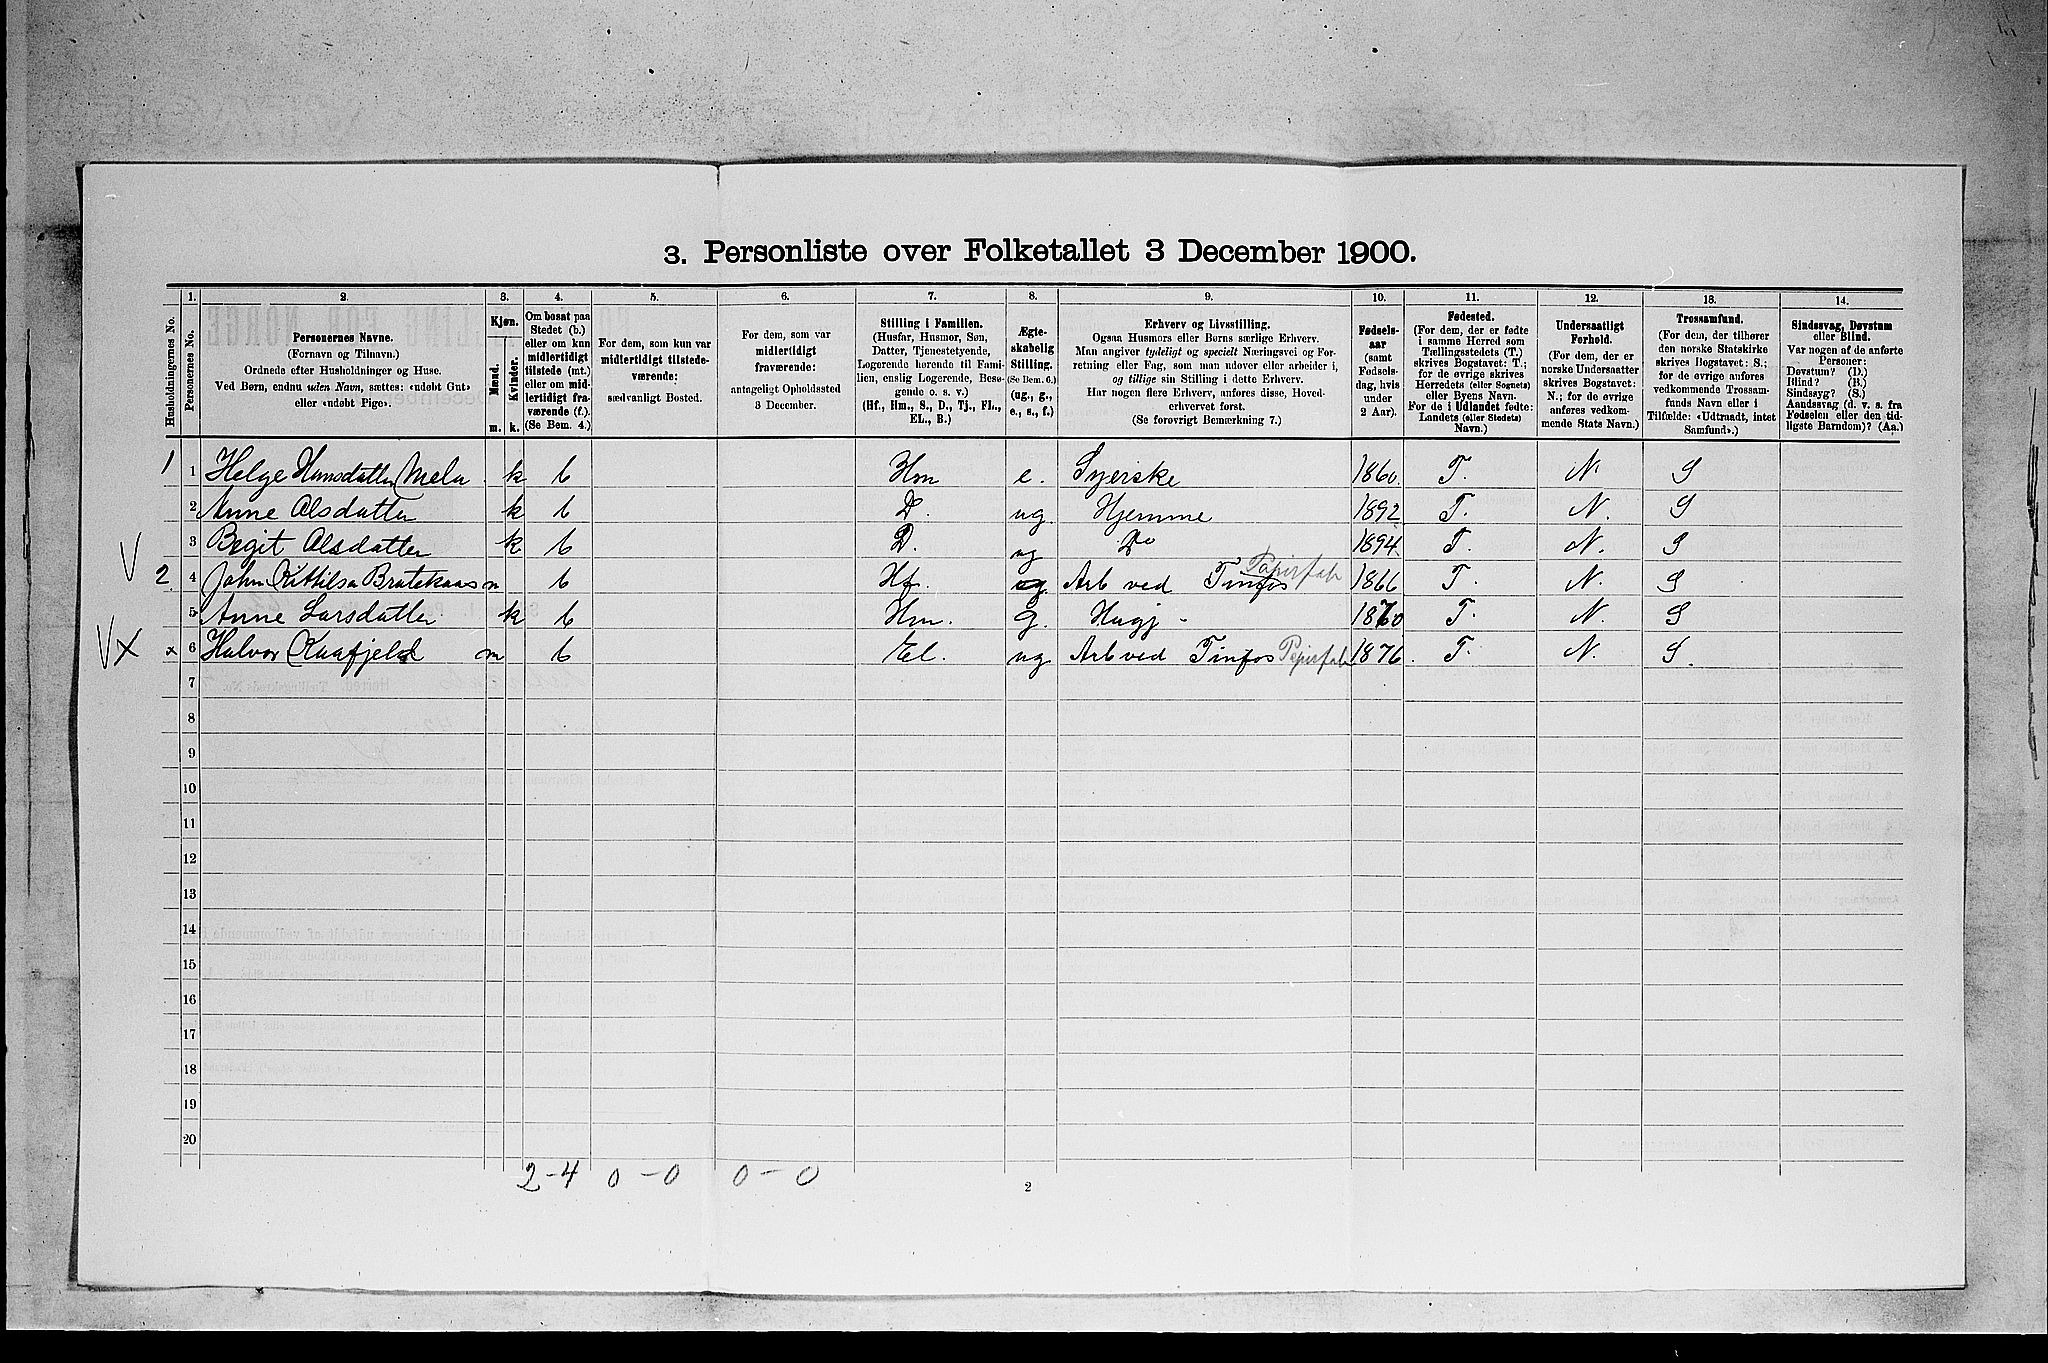 3. Personliste over Folketallet 3 December 1900.
Husholdningernes No.
1.
Personernes No.
2.
Personernes Navne.
(Fornavn og Tilnavn.)
Ordnede efter Husholdninger og Huse.
Ved Børn, endnu uden Navn, sættes: «udøbt Gut»
eller «udøbt Pige».
3.
Kjøn.
Mænd.
Kvinder.
m. k.
4.
Om bosat paa
Stedet (b.)
eller om kun
midlertidigt
tilstede (mt.)
eller om mid-
lertidigt fra-
værende (f.).
(Se Bem. 4.)
5.
For dem, som kun var
midlertidigt tilstede-
værende:
sædvanligt Bosted.
6.
For dem, som var
midlertidigt
fraværende:
antageligt Opholdssted
3 December.
7.
Stilling i Familien.
(Husfar, Husmor, Søn,
Datter, Tjenestetyende,
Logerende hørende til Fami-
lien, enslig Logerende, Besø-
gende o. s. v.)
(Hf., Hm., S., D., Tj., FL.,
EL., B.)
8.
Ægte-
skabelig
Stilling.
(Se Bem. 6.)
(ug., g.,
e., s., f.)
9.
Erhverv og Livsstilling.
Ogsaa Husmors eller Børns særlige Erhverv.
Man angiver tydeligt og specielt Næringsvei og For-
retning eller Fag, som man udøver eller arbeider i,
og tillige sin Stilling i dette Erhverv.
Har nogen flere Erhverv, anføres disse, Hoved-
erhvervet først.
(Se forøvrigt Bemærkning 7.)
10.
Fødsels-
aar
(samt
Fødsels-
dag, hvis
under
2 Aar).
11.
Fødested.
(For dem, der er fødte
i samme Herred som
Tællingsstedets (T.)
skrives Bogstavet: T.;
for de øvrige skrives
Herredets (eller Sognets)
eller Byens Navn.
For de i Udlandet fødte:
Landets (eller Stedets)
Navn.)
12.
Undersaatligt
Forhold.
(For dem, der er
norske Undersaatter
skrives Bogstavet:
N.; for de øvrige
anføres vedkom-
mende Stats Navn.)
13.
Trossamfund.
(For dem, der tilhører
den norske Statskirke
skrives Bogstavet: S.;
for de øvrige anføres
vedkommende Trossam-
funds Navn eller i
Tilfælde: «Udtraadt, intet
Samfund».)
14.
Sindssvag, Døvstum
eller Blind.
Var nogen af de anførte
Personer:
Døvstum? (D.)
Blind? (B.)
Sindssyg? (S.)
Aandssvag (d. v. s. fra
Fødselen eller den tid-
ligste Barndom)? (Aa.)
1 1 Helge Hansdatter Mela k b Hm e. Syerske 1860. T. N. S
2 Anne Olsdatter k b D. ug. Hjemme 1892 T. N. S
3 Begit Olsdatter k b D. ug Do 1894. T. N. S
V 2 4 John Kittilsen Bratekaas m b Hf. g. Arb ved Tinfos Papirfab 1866 T. N. S
5 Anne Larsdatter k b Hm. g. Husgj - 1870 T. N. S
V X x 6 Halvor Kaafjeld m b El. ug Arb ved Tinfos Papirfab 1876. T. N. S.
7
8
9
10
11
12
13
14
15
16
17
18
19
20
2-4 0-0 0-0
2